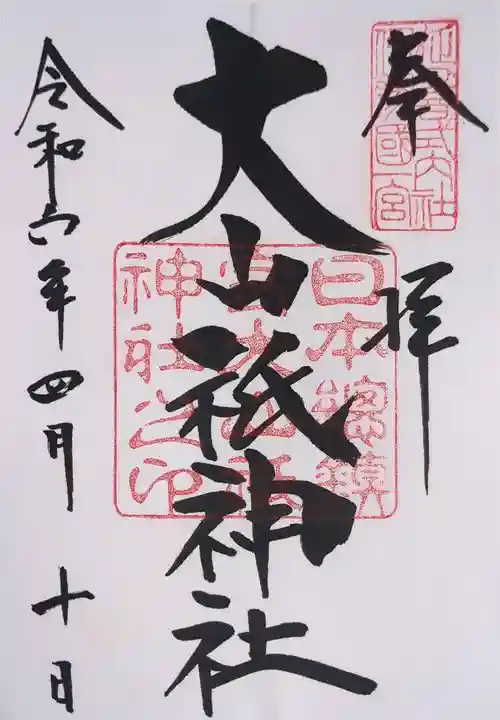 奉拝
延喜式内社
伊豫國一宮
大山祇神社
日本總鎮
守大山祇
神社之印
令和六年四月十日